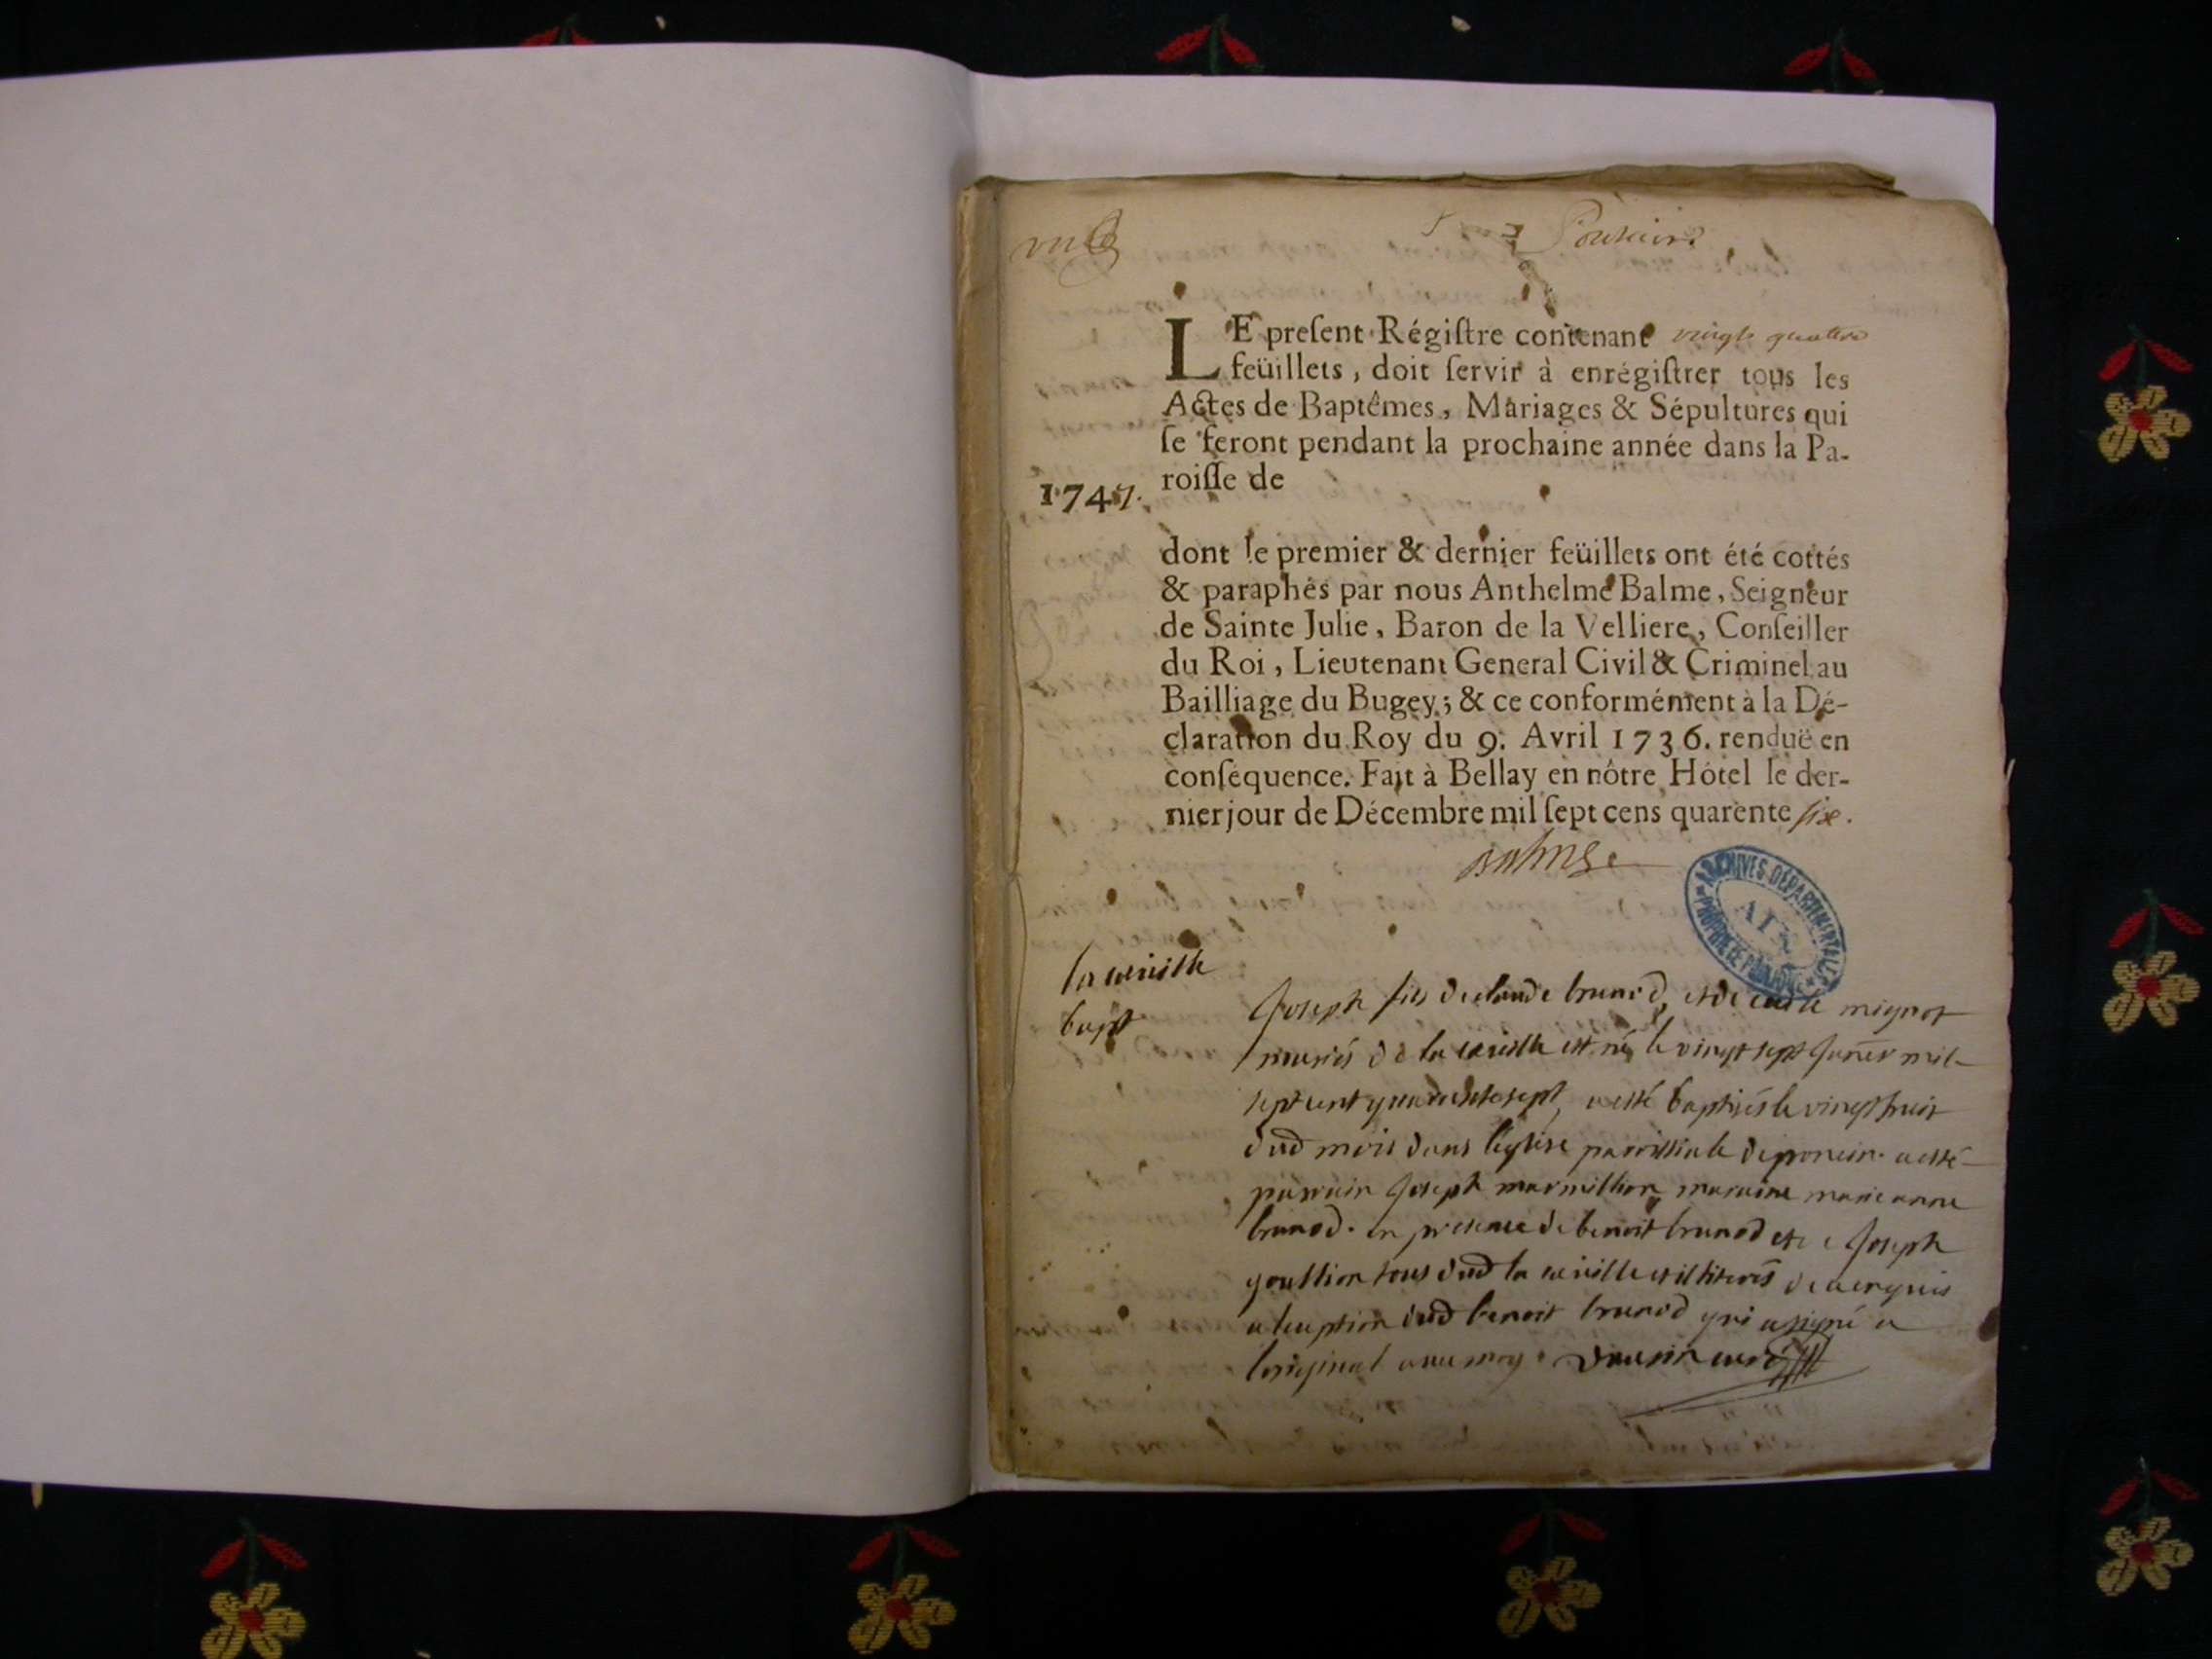 LE preſent Régiſtre contenant vingt quatre
feüillets, doit ſervir à enrégiſtrer tous les
Actes de Baptêmes, Mariages & Sépultures qui
ſe feront pendant la prochaine année dans la Pa-
roiſſe de
1747.
dont le premier & dernier feüillets ont été cottés
& paraphés par nous Anthelme Balme, Seigneur
de Sainte Julie, Baron de la Velliere, Conſeiller
du Roi, Lieutenant General Civil & Criminel au
Bailliage du Bugey; & ce conformément à la Dé-
claration du Roy du 9. Avril 1736. renduë en
conſéquence. Fait à Bellay en nôtre Hôtel le der-
nier jour de Décembre mil ſept cens quarente ſix.
Balme
ARCHIVES DEPARTEMENTALES
AIN
PROPRIETE PUBLIQUE
bapt
Joseph fils de claude brunod, et de mignot
mariés de la est né le vingt sept janver mil
sept cent quarente sept, a esté baptisés le vingt huit
dud mois dans l'eglise parroissiale de poncin. a esté
parrain Joseph marmillion maraine marie anne
brunod. en presence de benoit brunod et Joseph
goultion tous dud la et illiterés de ce enquis
a leception dud benoit brunod qui a signé a
loriginal avec moy. curé